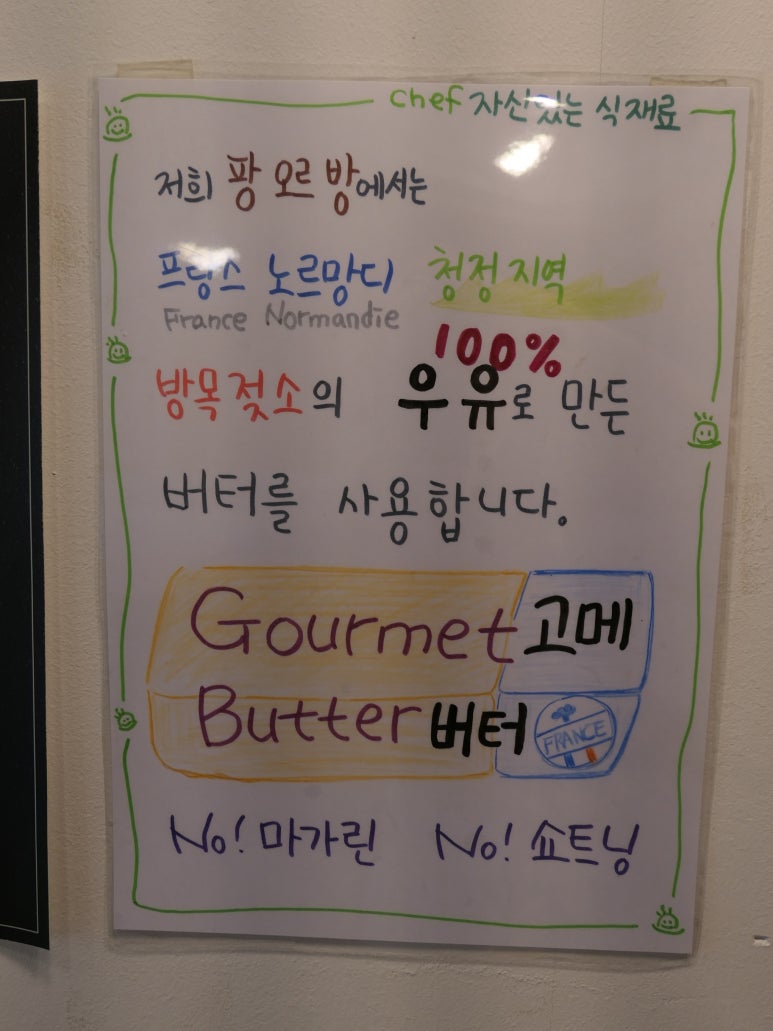 chef 자신있는 식재료
저희 팡 오르 방에서는
프랑스 노르망디 청정지역
France Normandie
100%
방목젖소의 우유로 만든
버터를 사용합니다.
Gourmet 고메
Butter 버터
FRANCE
No! 마가린 No! 쇼트닝